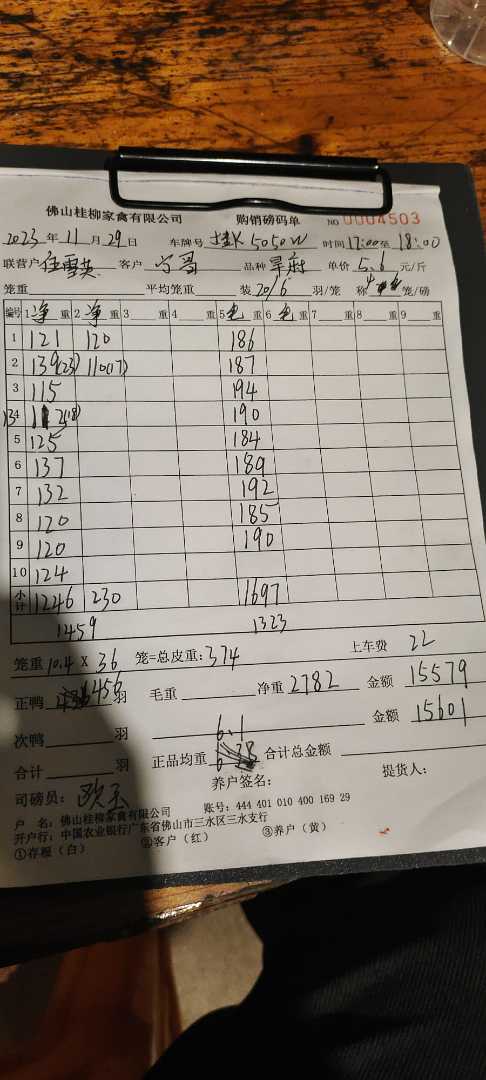 佛山桂柳家禽有限公司 购销磅码单 NO 0004503
2023年11月29日 车牌号 桂K 5050W 时间 17:00至18:00
联营户 客户 品种 单价 5.6 元/斤
笼重 平均笼重 装 20/6 羽/笼 称 4 笼/磅
编号 1净重 2净重 3 重 4 重 5毛重 6毛重 7 重 8 重 9 重
1 121 120 186
2 139(23) 110(17) 187
3 115 194
4 190
5 125 184
6 137 189
7 132 192
8 120 185
9 120 190
10 124
小计 1246 230 1697
1459 1323
笼重 10.4 X 36 笼=总皮重: 374 上车费 22
正鸭 456 羽 毛重 净重 2782 金额 15579
次鸭 羽 6.1 金额 15601
合计 羽 正品均重 合计总金额
养户签名: 提货人:
司磅员:
户 名: 佛山桂柳家禽有限公司 账号: 444 401 010 400 169 29
开户行: 中国农业银行广东省佛山市三水区三水支行
①存根（白） ②客户（红） ③养户（黄）